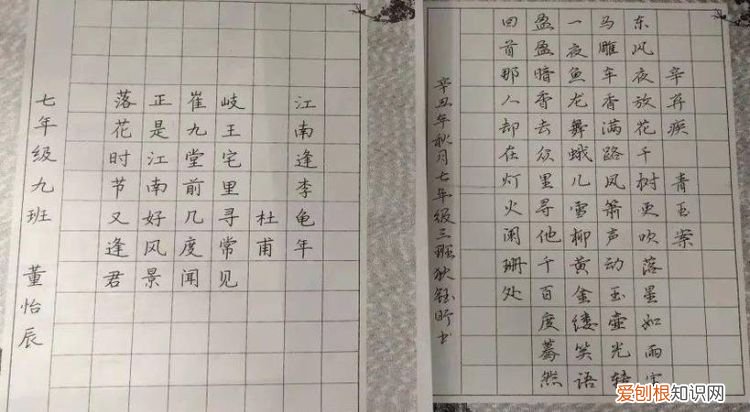 江南逢李龟年
杜甫
岐王宅里寻常见
崔九堂前几度闻
正是江南好风景
落花时节又逢君
七年级九班 董怡辰
辛弃疾 青玉案
东风夜放花千树更吹落星如雨
马雕车香满路凤箫声动玉壶光转
一夜鱼龙舞蛾儿雪柳黄金缕笑语
盈盈暗香去众里寻他千百度蓦然
回首那人却在灯火阑珊处
辛丑年秋月七年级三班狄钰书
爱刨根知识网